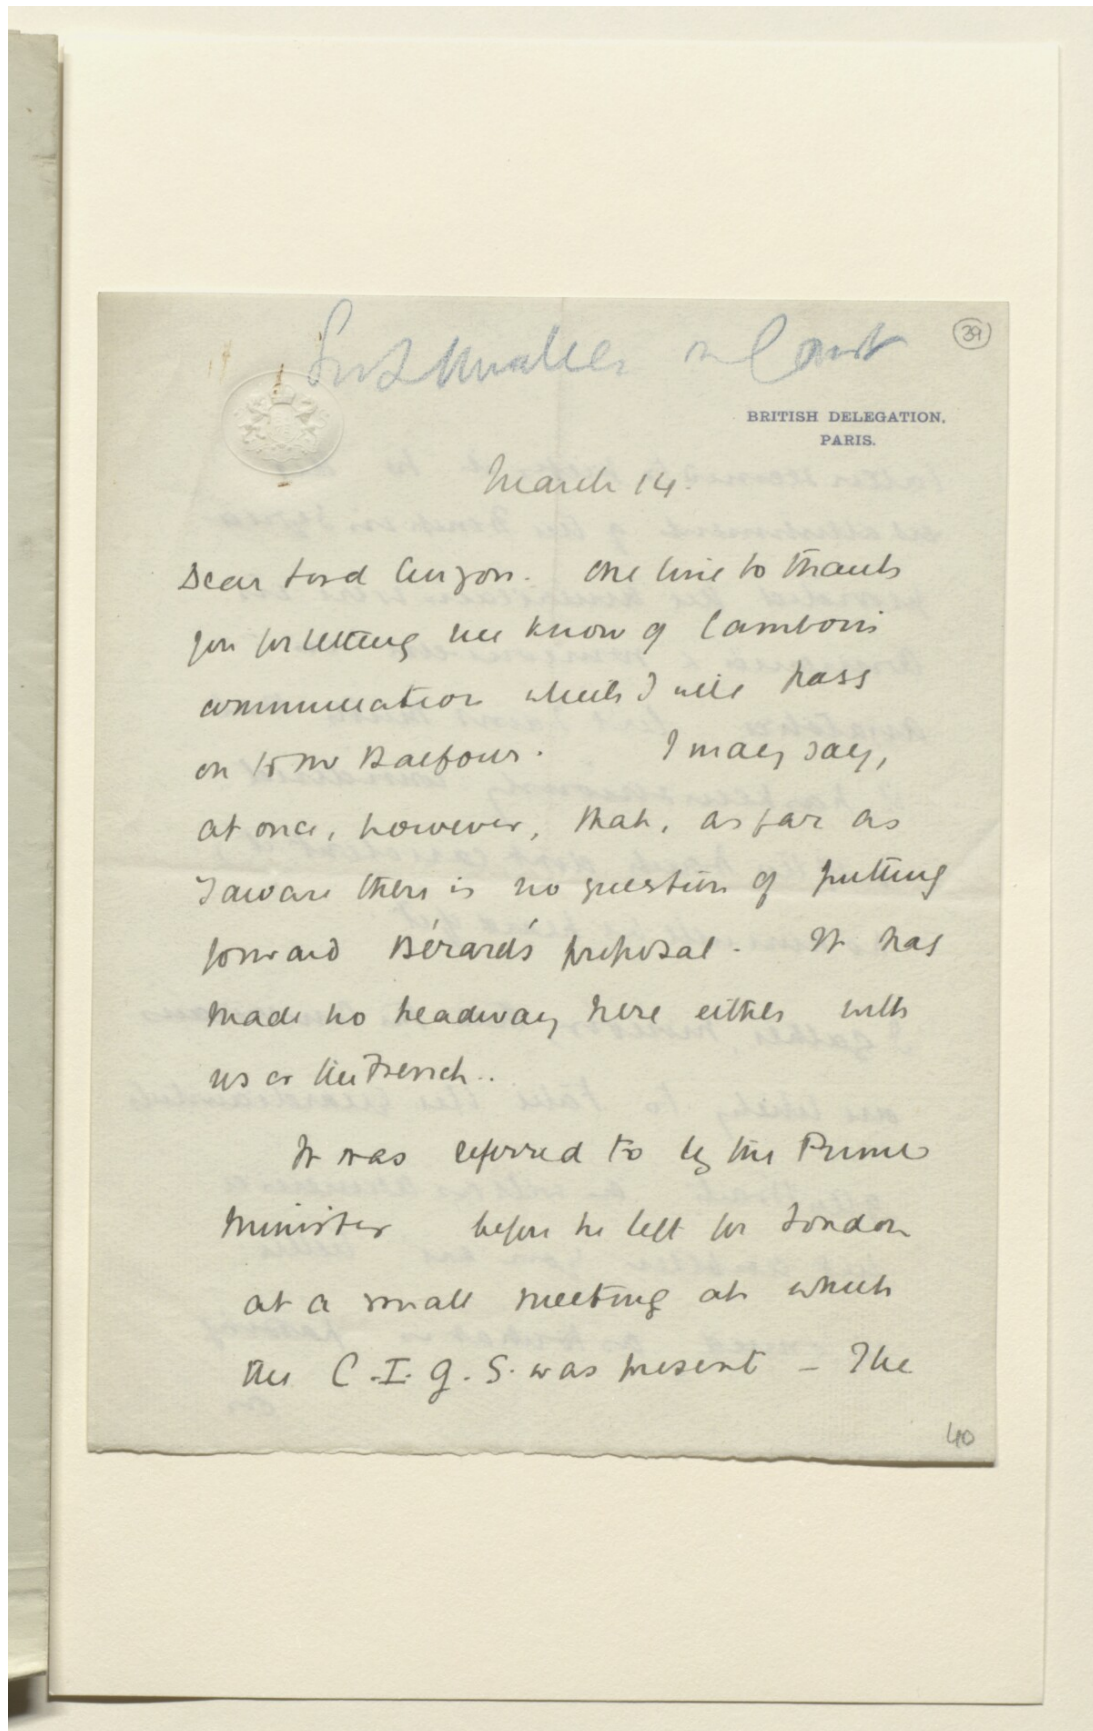 39
BRITISH DELEGATION,
PARIS.
March 14.
Dear Lord Curzon. One line to thank
you for letting me know of Cambon's
communication which I will pass
on to Mr Balfour. I may say,
at once, however, that, as far as
I aware there is no question of putting
forward Bérard's proposal. It has
made no headway here either with
us or the French..
It was referred to by the Prime
Minister before he left for London
at a small meeting at which
the C.I.G.S. was present - The
40